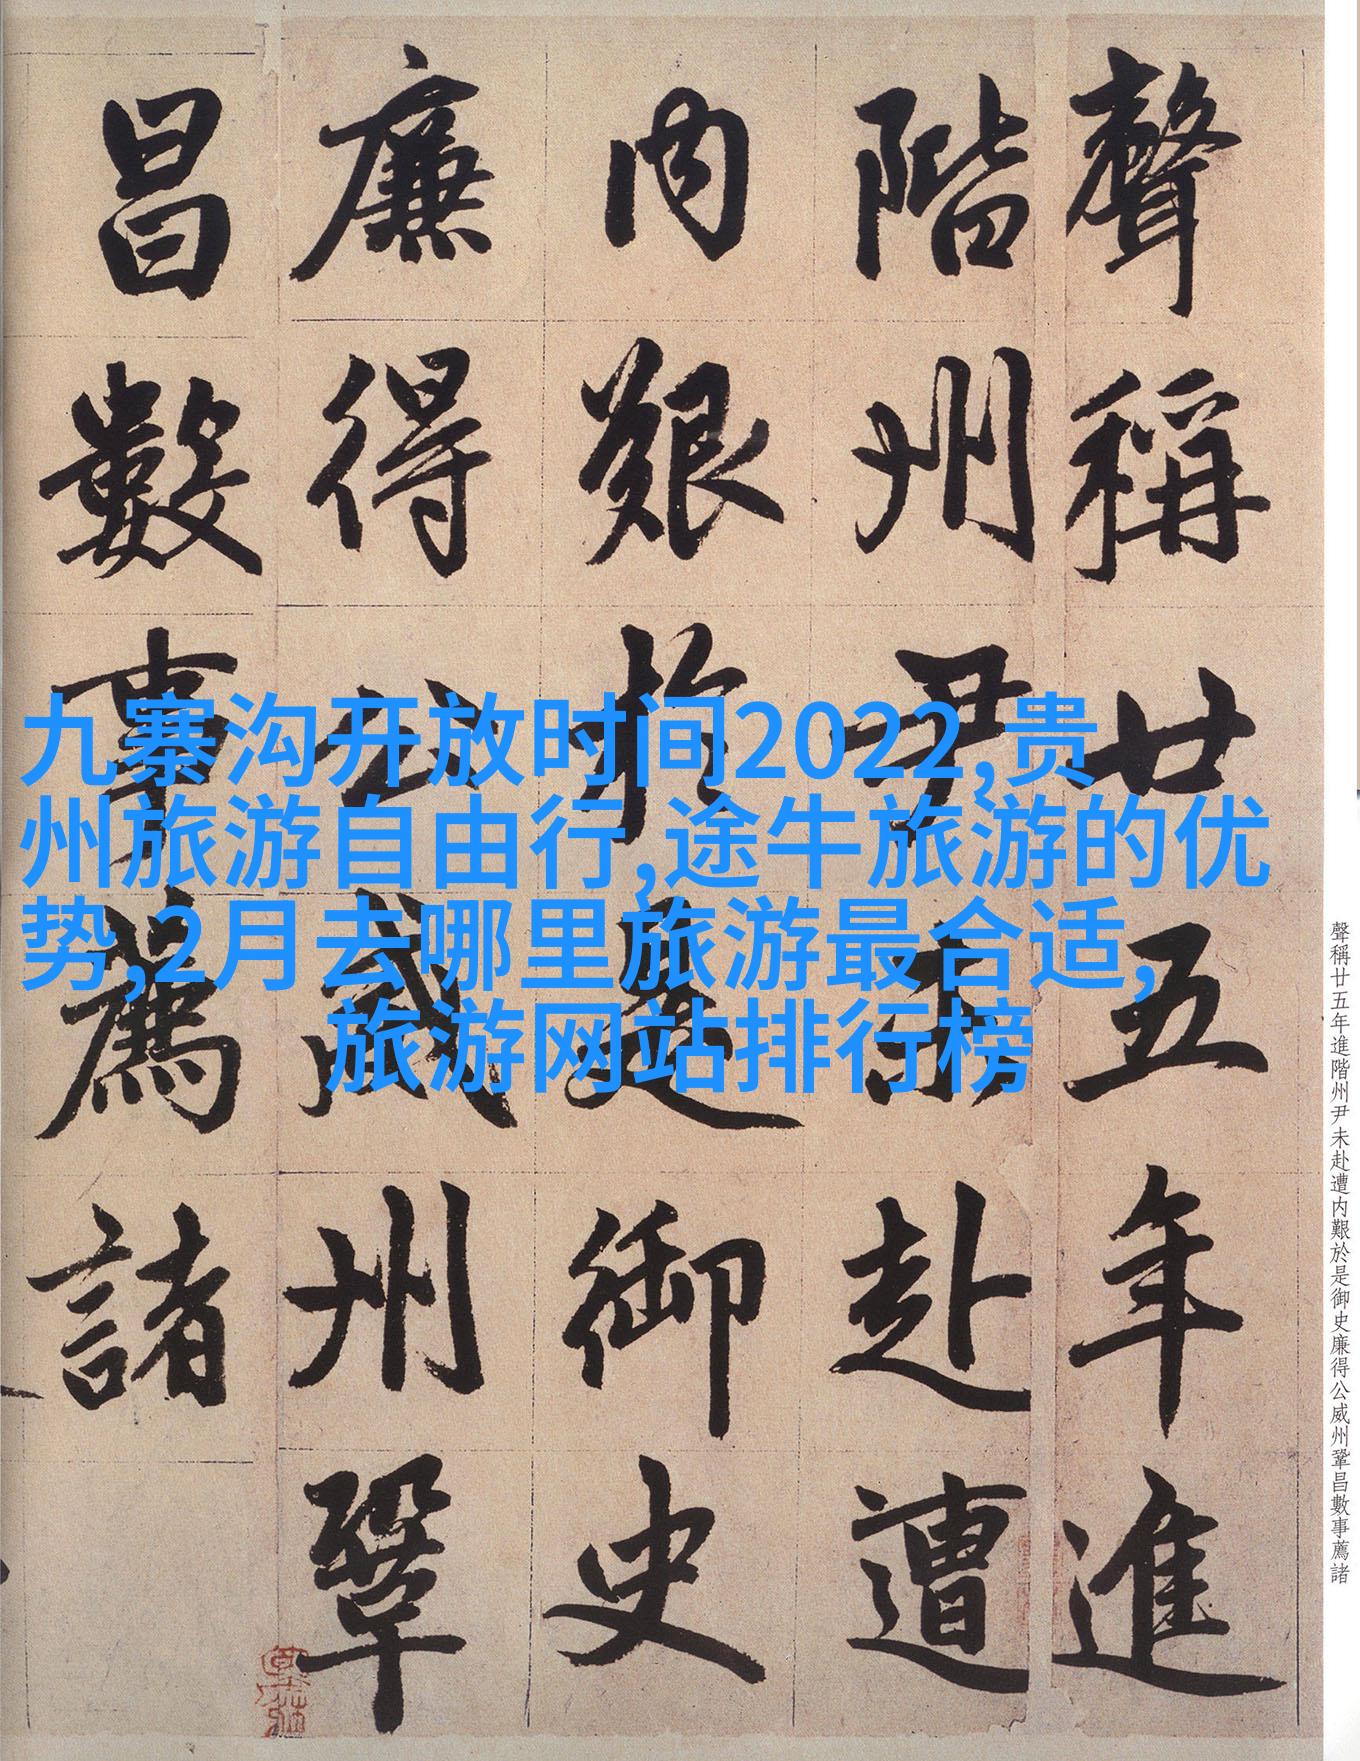 聲稱廿五年進
階州尹未赴遭
内艱於是御史
廉得公威州鞏
昌數事薦諸
九寨沟开放时间2022,贵
州旅游自由行,途牛旅游的优
势,2月去哪里旅游最合适,
旅游网站排行榜
聲稱廿五年進階州尹未赴遭内艱於是御史廉得公威州鞏昌數事薦諸